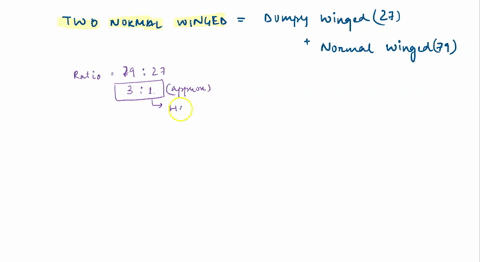 TWO NORMAL WINGED = Dumpy winged (27)
+ Normal winged (79)
Ratio = 79 : 27
3 : 1 (approx)
→ H